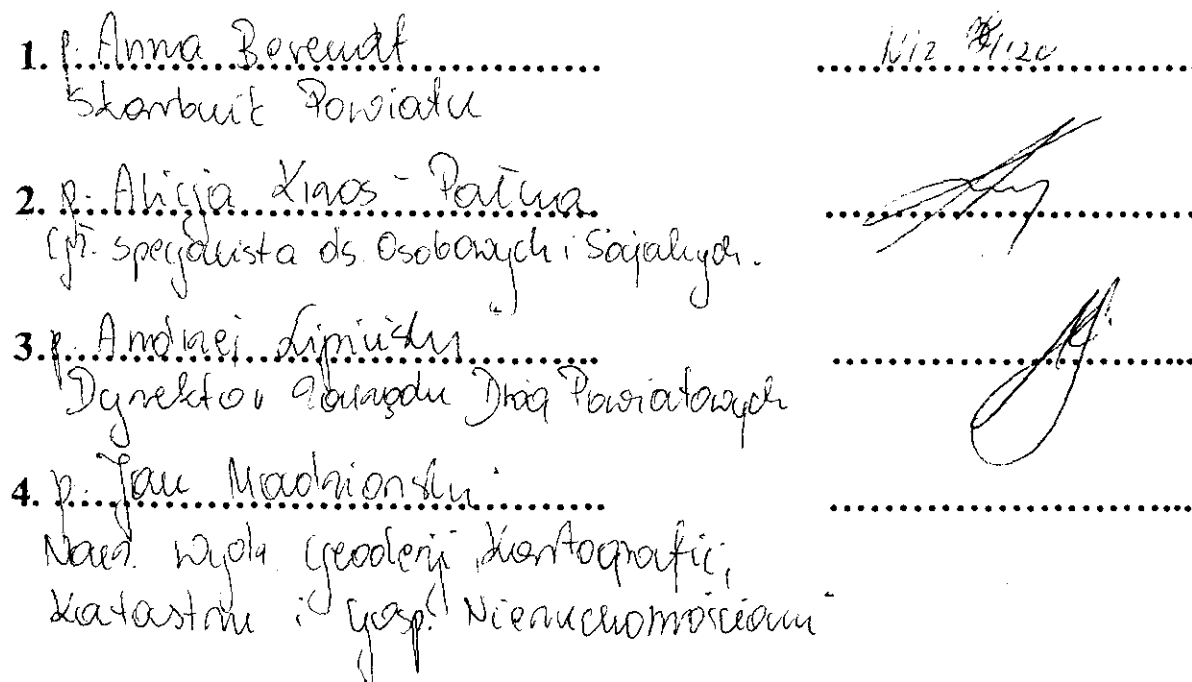 1. p. Anna Berendt
Skarbnik Powiatu
2. p. Alicja Kłos - Pałka
Gł. specjalista ds. Osobowych i Socjalnych.
3. p. Andrzej Lipiński
Dyrektor Zarządu Dróg Powiatowych
4. p. Jan Madzionski
Nacz. Wydz. Geodezji, Kartografii,
Katastru i Gosp. Nieruchomościami